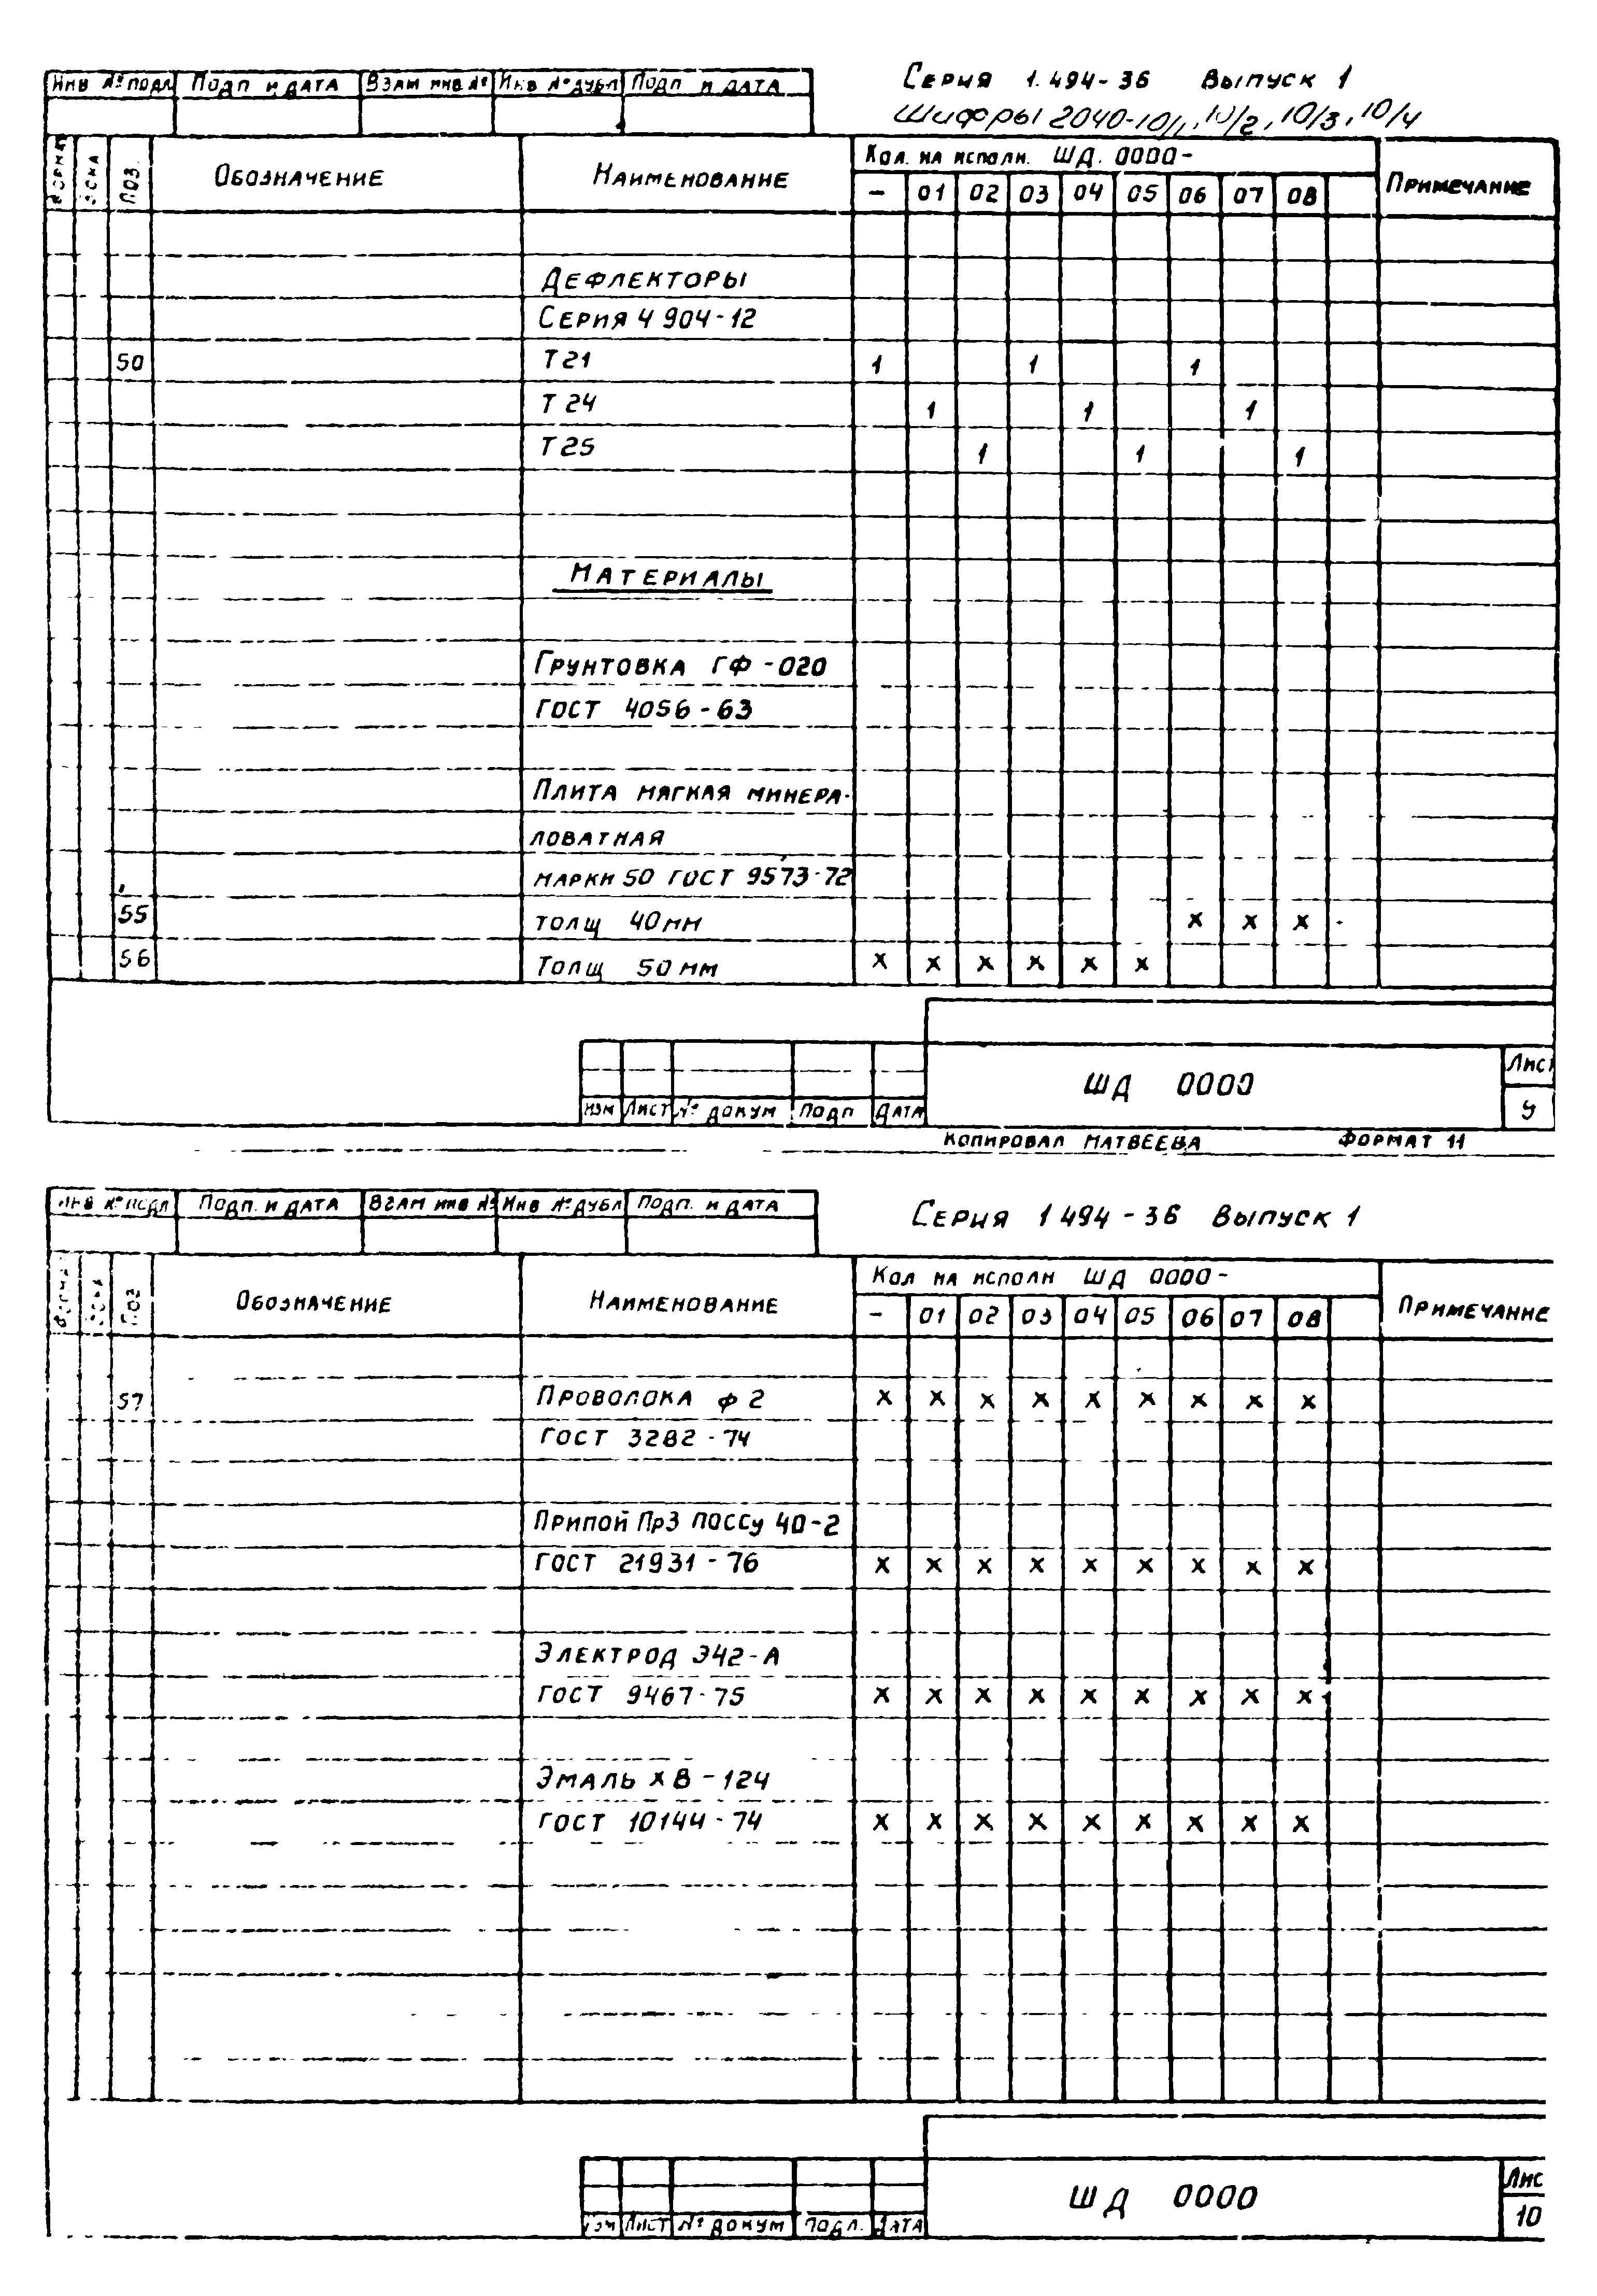 Инв № подл Подп и дата Взам инв № Инв № дубл Подп и дата
Серия 1.494-36 Выпуск 1
Шифры 2040-10/1, 10/2, 10/3, 10/4
Поз. Обозначение Наименование Кол. на исполн. ШД. 0000- Примечание
- 01 02 03 04 05 06 07 08
Дефлекторы
Серия 4 904-12
50 Т21 1 1 1
Т24 1 1 1
Т25 1 1 1
Материалы
Грунтовка ГФ-020
ГОСТ 4056-63
Плита мягкая минера-
ловатная
марки 50 ГОСТ 9573-72
55 толщ 40мм х х х
56 Толщ 50мм х х х х х х
ШД 0000
Лист
9
Изм Лист № докум Подп Дата
Копировал Матвеева Формат 11
Инв № подл Подп. и дата Взам инв № Инв № дубл Подп. и дата
Серия 1 494-36 Выпуск 1
Поз Обозначение Наименование Кол на исполн ШД 0000- Примечание
- 01 02 03 04 05 06 07 08
57 Проволока ф 2 х х х х х х х х х
ГОСТ 3282-74
Припой Пр3 ПОССу 40-2
ГОСТ 21931-76 х х х х х х х х х
Электрод Э42-А
ГОСТ 9467-75 х х х х х х х х х
Эмаль ХВ-124
ГОСТ 10144-74 х х х х х х х х х
ШД 0000
Лис
10
Изм Лист № докум Подп. Дата